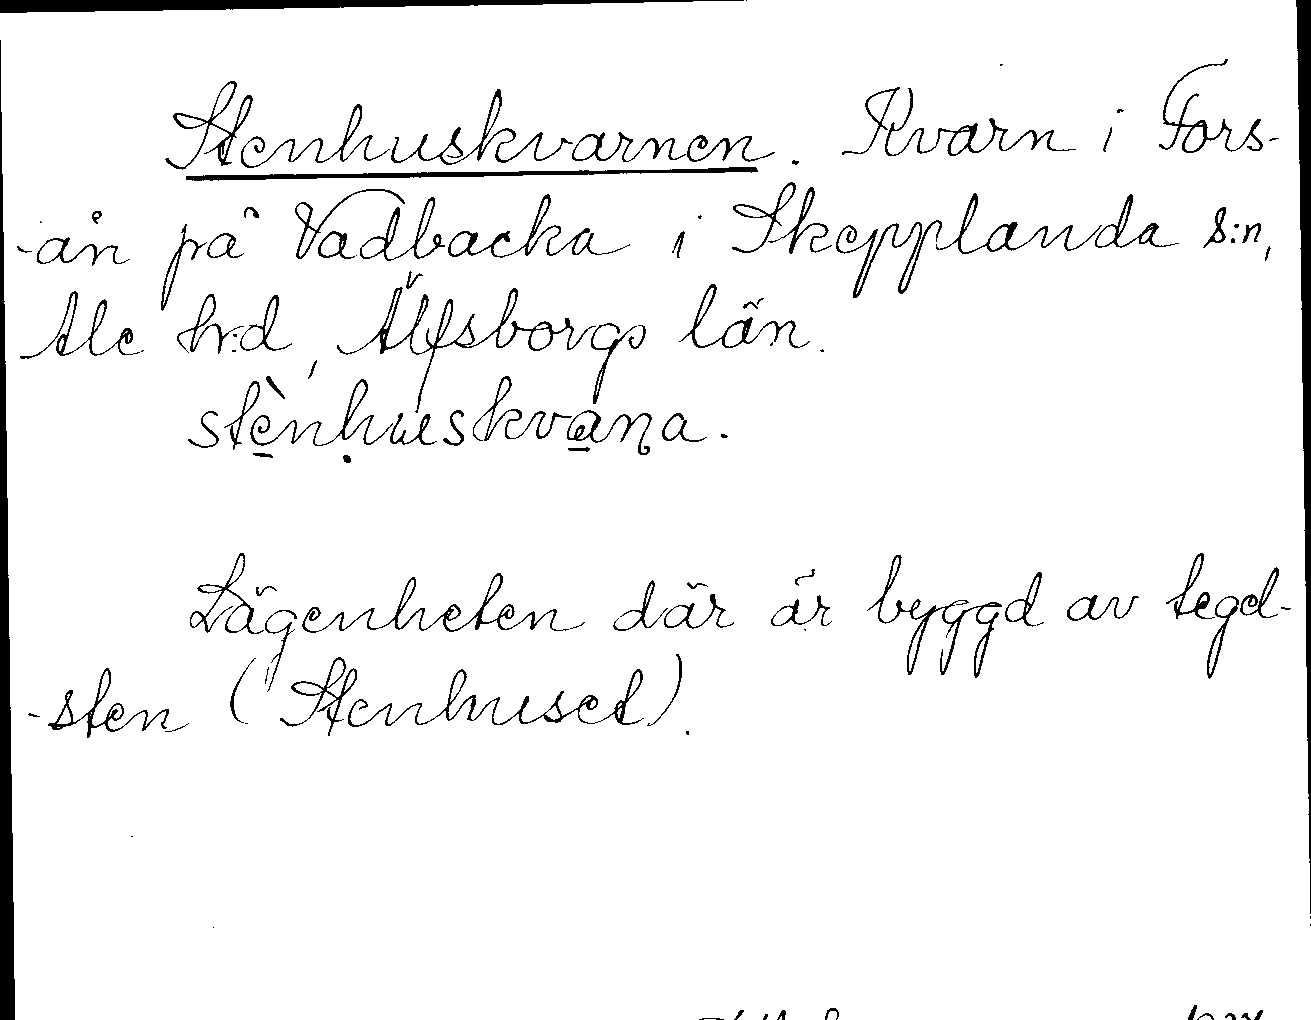 Stenhuskvarnen. Kvarn i Fors-
-ån på Vadbacka i Skepplanda s:n,
Ale hr:d, Älfsborgs län.
stè̱nhu̇skva̱ɳa.
Lägenheten där är byggd av tegel-
-sten (Stenhuset).